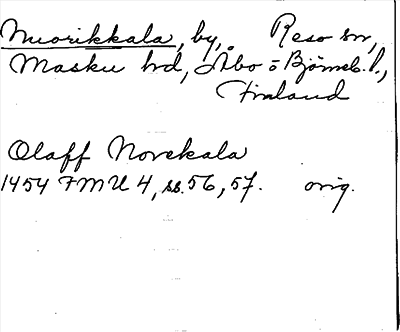 Nuorikkala, by, Reso sn,
Masku hd, Åbo o Björneb. l.,
Finland
Olaff Norekala
1454 FMU 4, ss. 56, 57. orig.